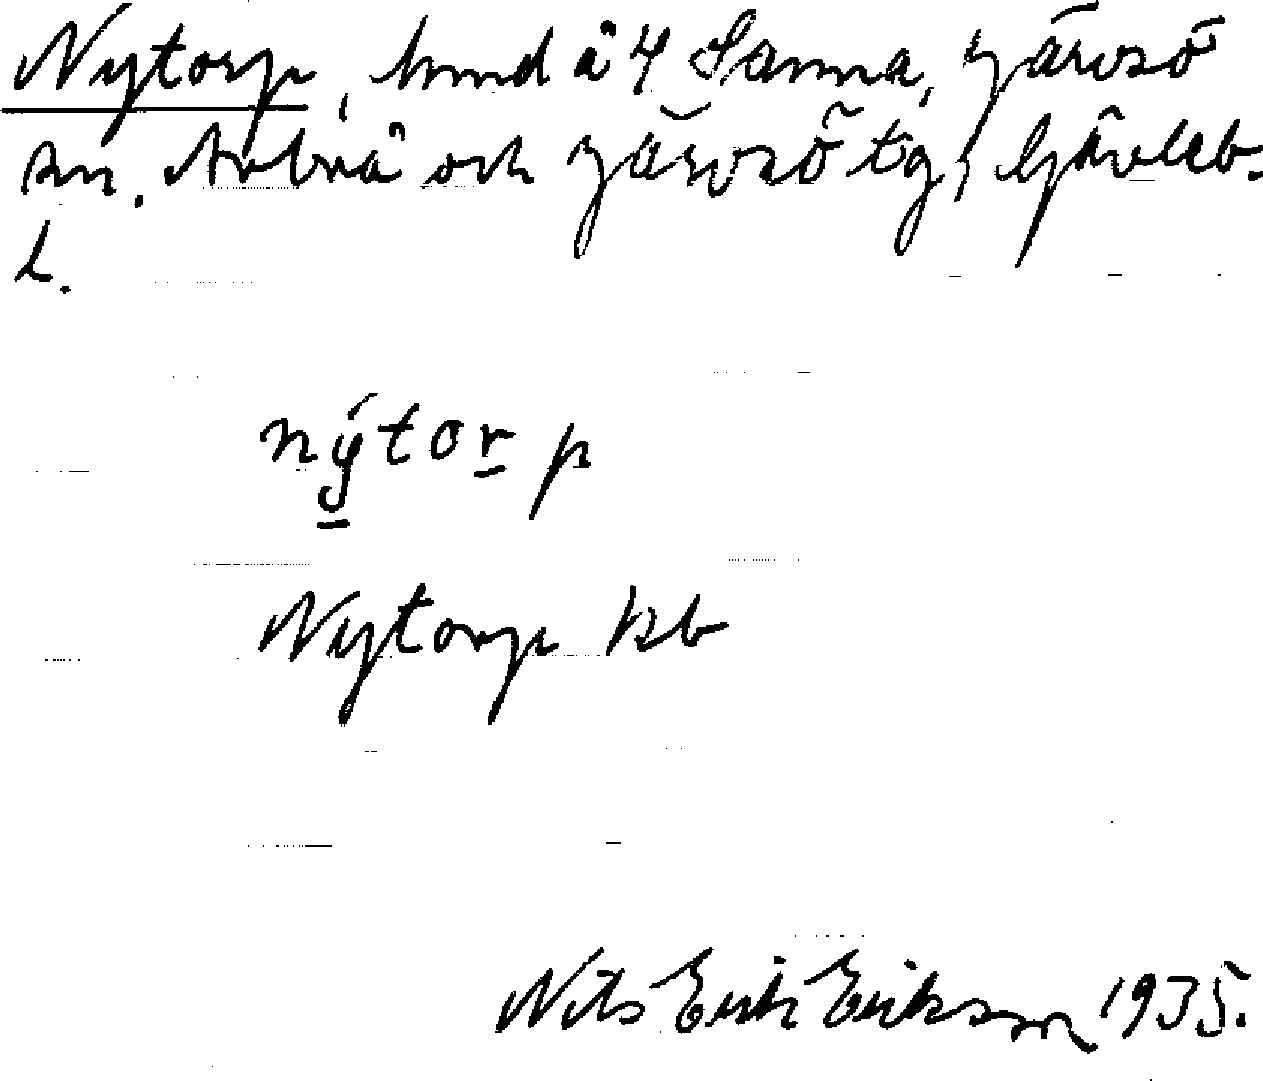 Nytorp, hmd å 4 Sanna, Järvsö
sn. Arbrå och Järvsö tg, Gävleb.
l.
nýtor p
Nytorp kb
Nils Erik Erikson 1935.